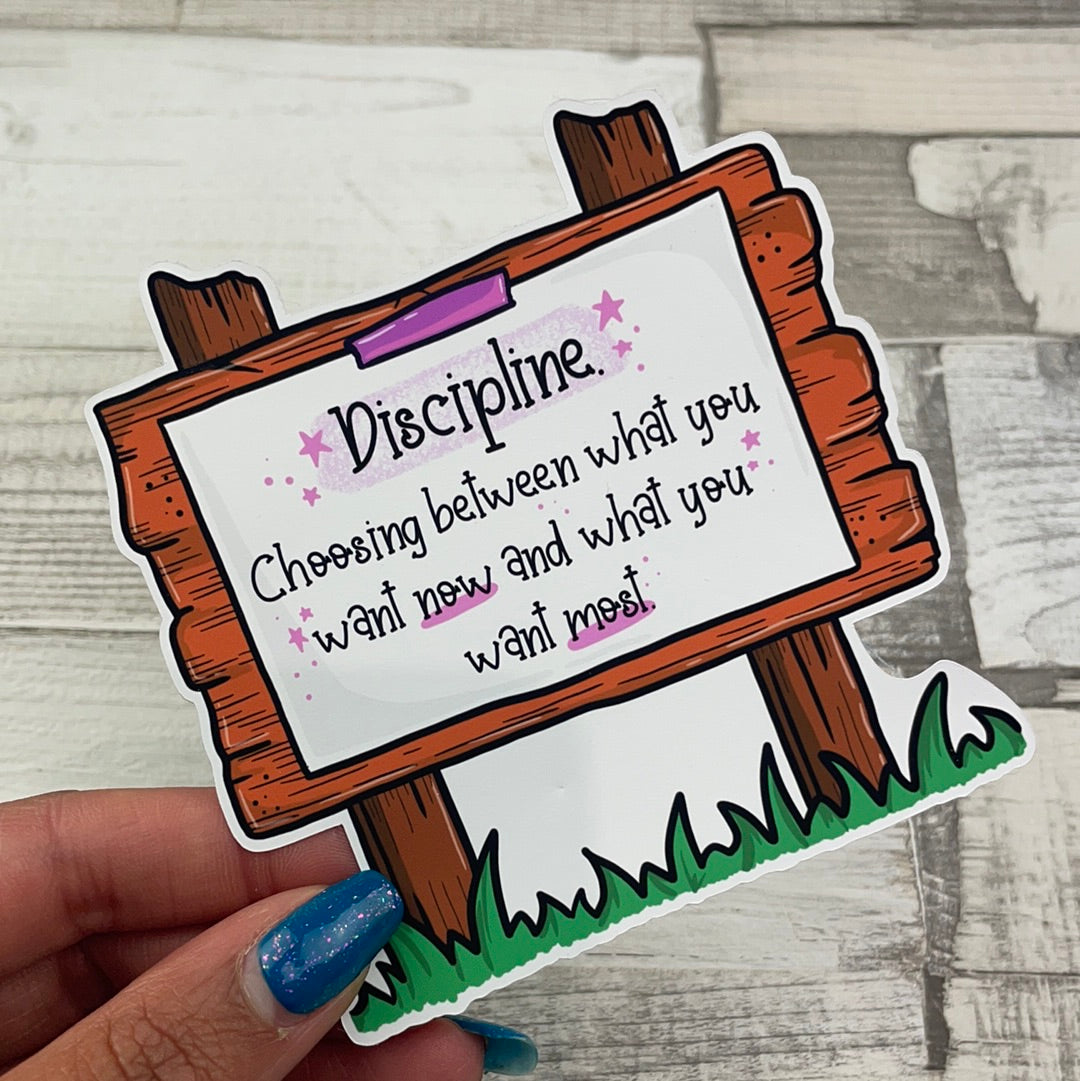 Discipline.
Choosing between what you
want now and what you
want most.